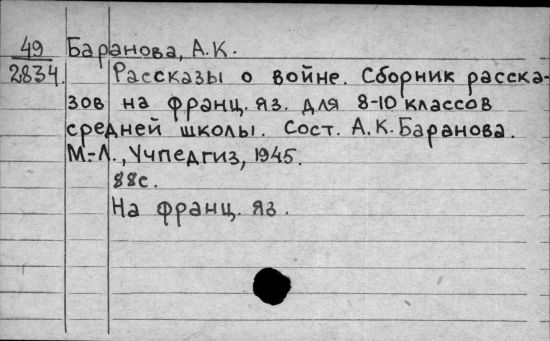 49 Баранова, А.К.
2834. Рассказы о войне. Сборник расска-
зов на франц. яз. для 8-10 классов
средней школы. Сост. А.К.Баранова.
М.-Л., Учпедгиз, 1945.
88с.
На франц. яз.